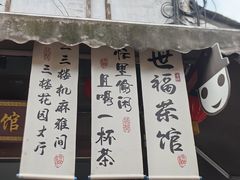 世福茶馆
忙里偷闲
且喝一杯茶
一二楼机麻雅间
三楼花园大厅
馆